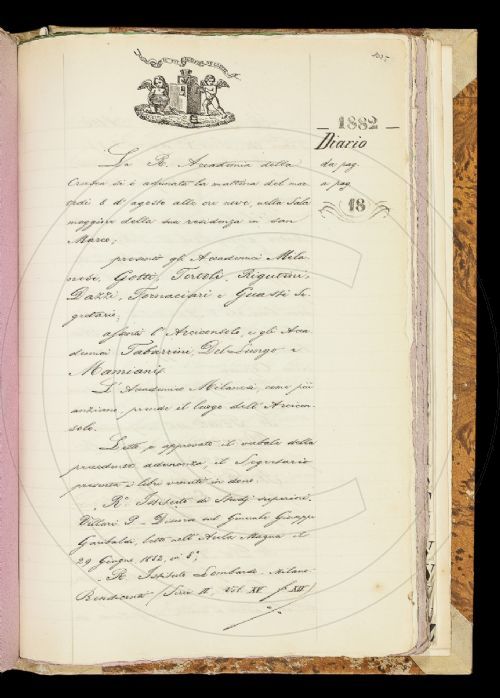 1882
Diario
da pag.
a pag.
18
La R. Accademia della
Crusca si è adunata la mattina del mar
tedì 8 di agosto alle ore nove, nella Sala
maggiore della sua residenza in San
Marco;
presenti gli Accademici Mila
nesi, Gotti, Tortoli, Rigutini,
Dazzi, Fornaciari e Guasti Se
gretario;
assenti l'Arciconsolo, e gli Acca
demici Tabarrini, Del Lungo e
Mamiani.
L'Accademico Milanesi, come più
anziano, prende il luogo dell'Arcicon
solo.
Letto e approvato il verbale della
precedente adunanza, il Segretario
presenta i libri venuti in dono:
R.º Istituto di Studj superiori.
Villari P. Discorso sul Generale Giuseppe
Garibaldi, letto nell'Aula Magna il
29 Giugno 1882, in 8.º
R. Istituto Lombardo. Milano
Rendiconti (Serie II, Vol. XV f. XIII)